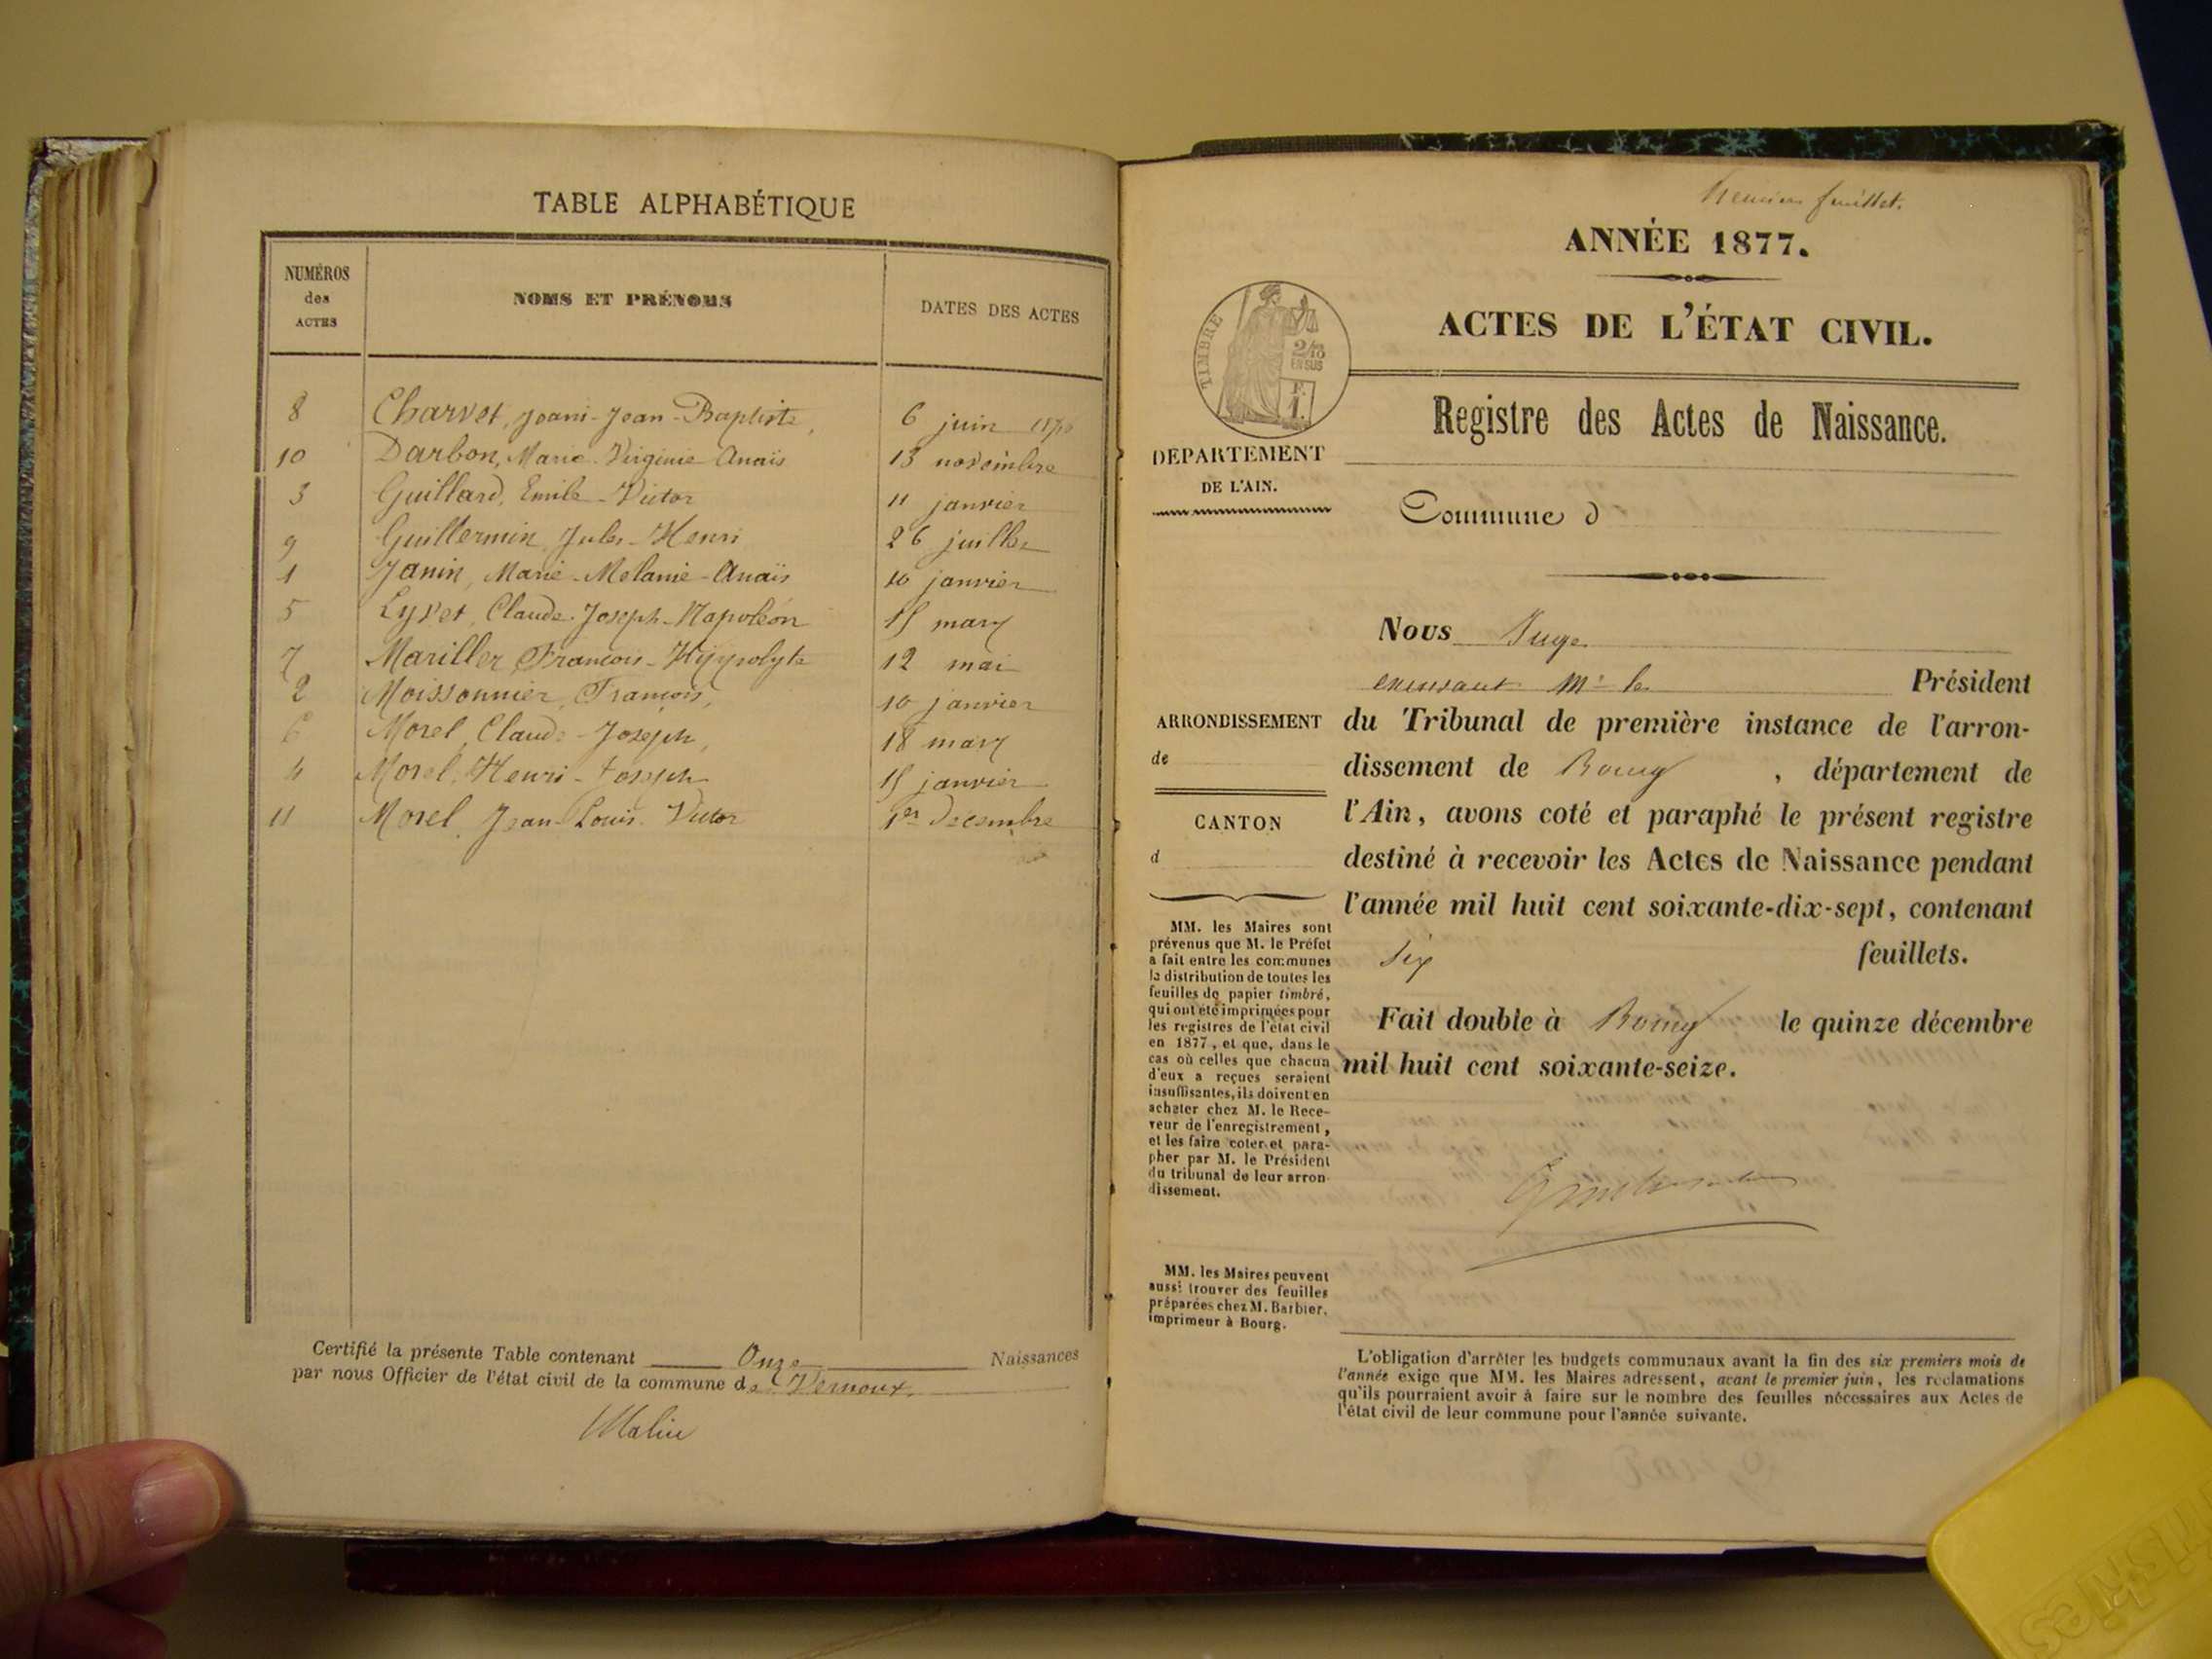 TABLE ALPHABÉTIQUE
NUMÉROS des ACTES
NOMS ET PRÉNOMS
DATES DES ACTES
8 Charvet, Joani-Jean-Baptiste, 6 juin
10 Darbon, Marie-Virginie Anaïs 13 novembre
3 Guillard, Emile-Victor 11 janvier
9 Guillermin Jules-Henri 26 juillet
1 Janin, Marie-Melanie-Anaïs 10 janvier
5 Lyvet, Claude-Joseph-Napoléon 15 mars
7 Mariller François-Hyppolyte 12 mai
2 Moissonnier, François, 10 janvier
6 Morel, Claude-Joseph, 18 mars
4 Morel, Henri-Joseph 15 janvier
11 Morel, Jean-Louis-Victor 1er Décembre
Certifié la présente Table contenant Onze Naissances
par nous Officier de l'état civil de la commune de Vernoux.
premier feuillet.
ANNÉE 1877.
ACTES DE L'ÉTAT CIVIL.
TIMBRE
2/10
EN SUS
F.
1.
Registre des Actes de Naissance.
DÉPARTEMENT
DE L'AIN.
Commune d
Nous Juge
Président
ARRONDISSEMENT
de
CANTON
d
du Tribunal de première instance de l'arron-
dissement de Bourg , département de
l'Ain, avons coté et paraphé le présent registre
destiné à recevoir les Actes de Naissance pendant
l'année mil huit cent soixante-dix-sept, contenant
six feuillets.
Fait double à Bourg le quinze décembre
mil huit cent soixante-seize.
MM. les Maires sont
prévenus que M. le Préfet
a fait entre les communes
la distribution de toutes les
feuilles de papier timbré,
qui ont été imprimées pour
les registres de l'état civil
en 1877, et que, dans le
cas où celles que chacun
d'eux a reçues seraient
insuffisantes, ils doivent en
acheter chez M. le Rece-
veur de l'enregistrement,
et les faire coter et para-
pher par M. le Président
du tribunal de leur arron-
dissement.
MM. les Maires peuvent
aussi trouver des feuilles
préparées chez M. Barbier,
imprimeur à Bourg.
L'obligation d'arrêter les budgets communaux avant la fin des six premiers mois de
l'année exige que MM. les Maires adressent, avant le premier juin, les réclamations
qu'ils pourraient avoir à faire sur le nombre des feuilles nécessaires aux Actes de
l'état civil de leur commune pour l'année suivante.